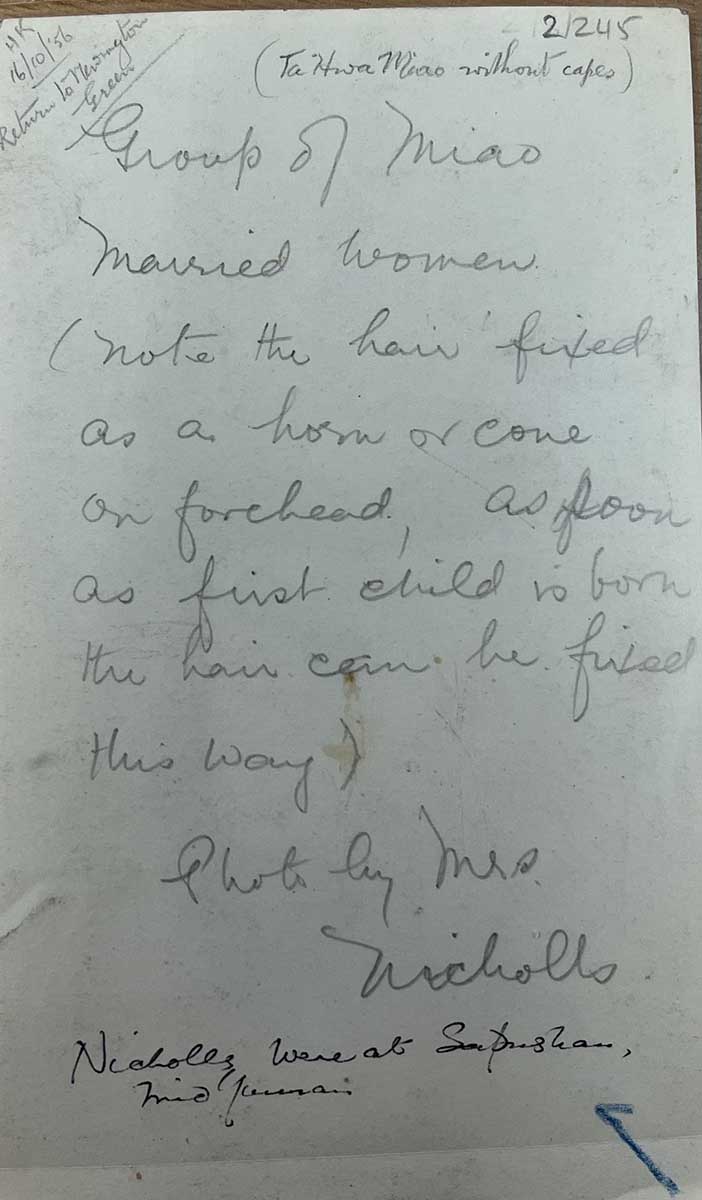 HK
16/10/56
Return to Newington
Green
2/245
(Ta Hwa Miao without capes)
Group of Miao
Married women
(note the hair fixed
as a horn or cone
on forehead, as soon
as first child is born
the hair can be fixed
this way)
Photo by Mrs.
Nicholls.
Nicholls were at Sapushan,
mid Yunnan